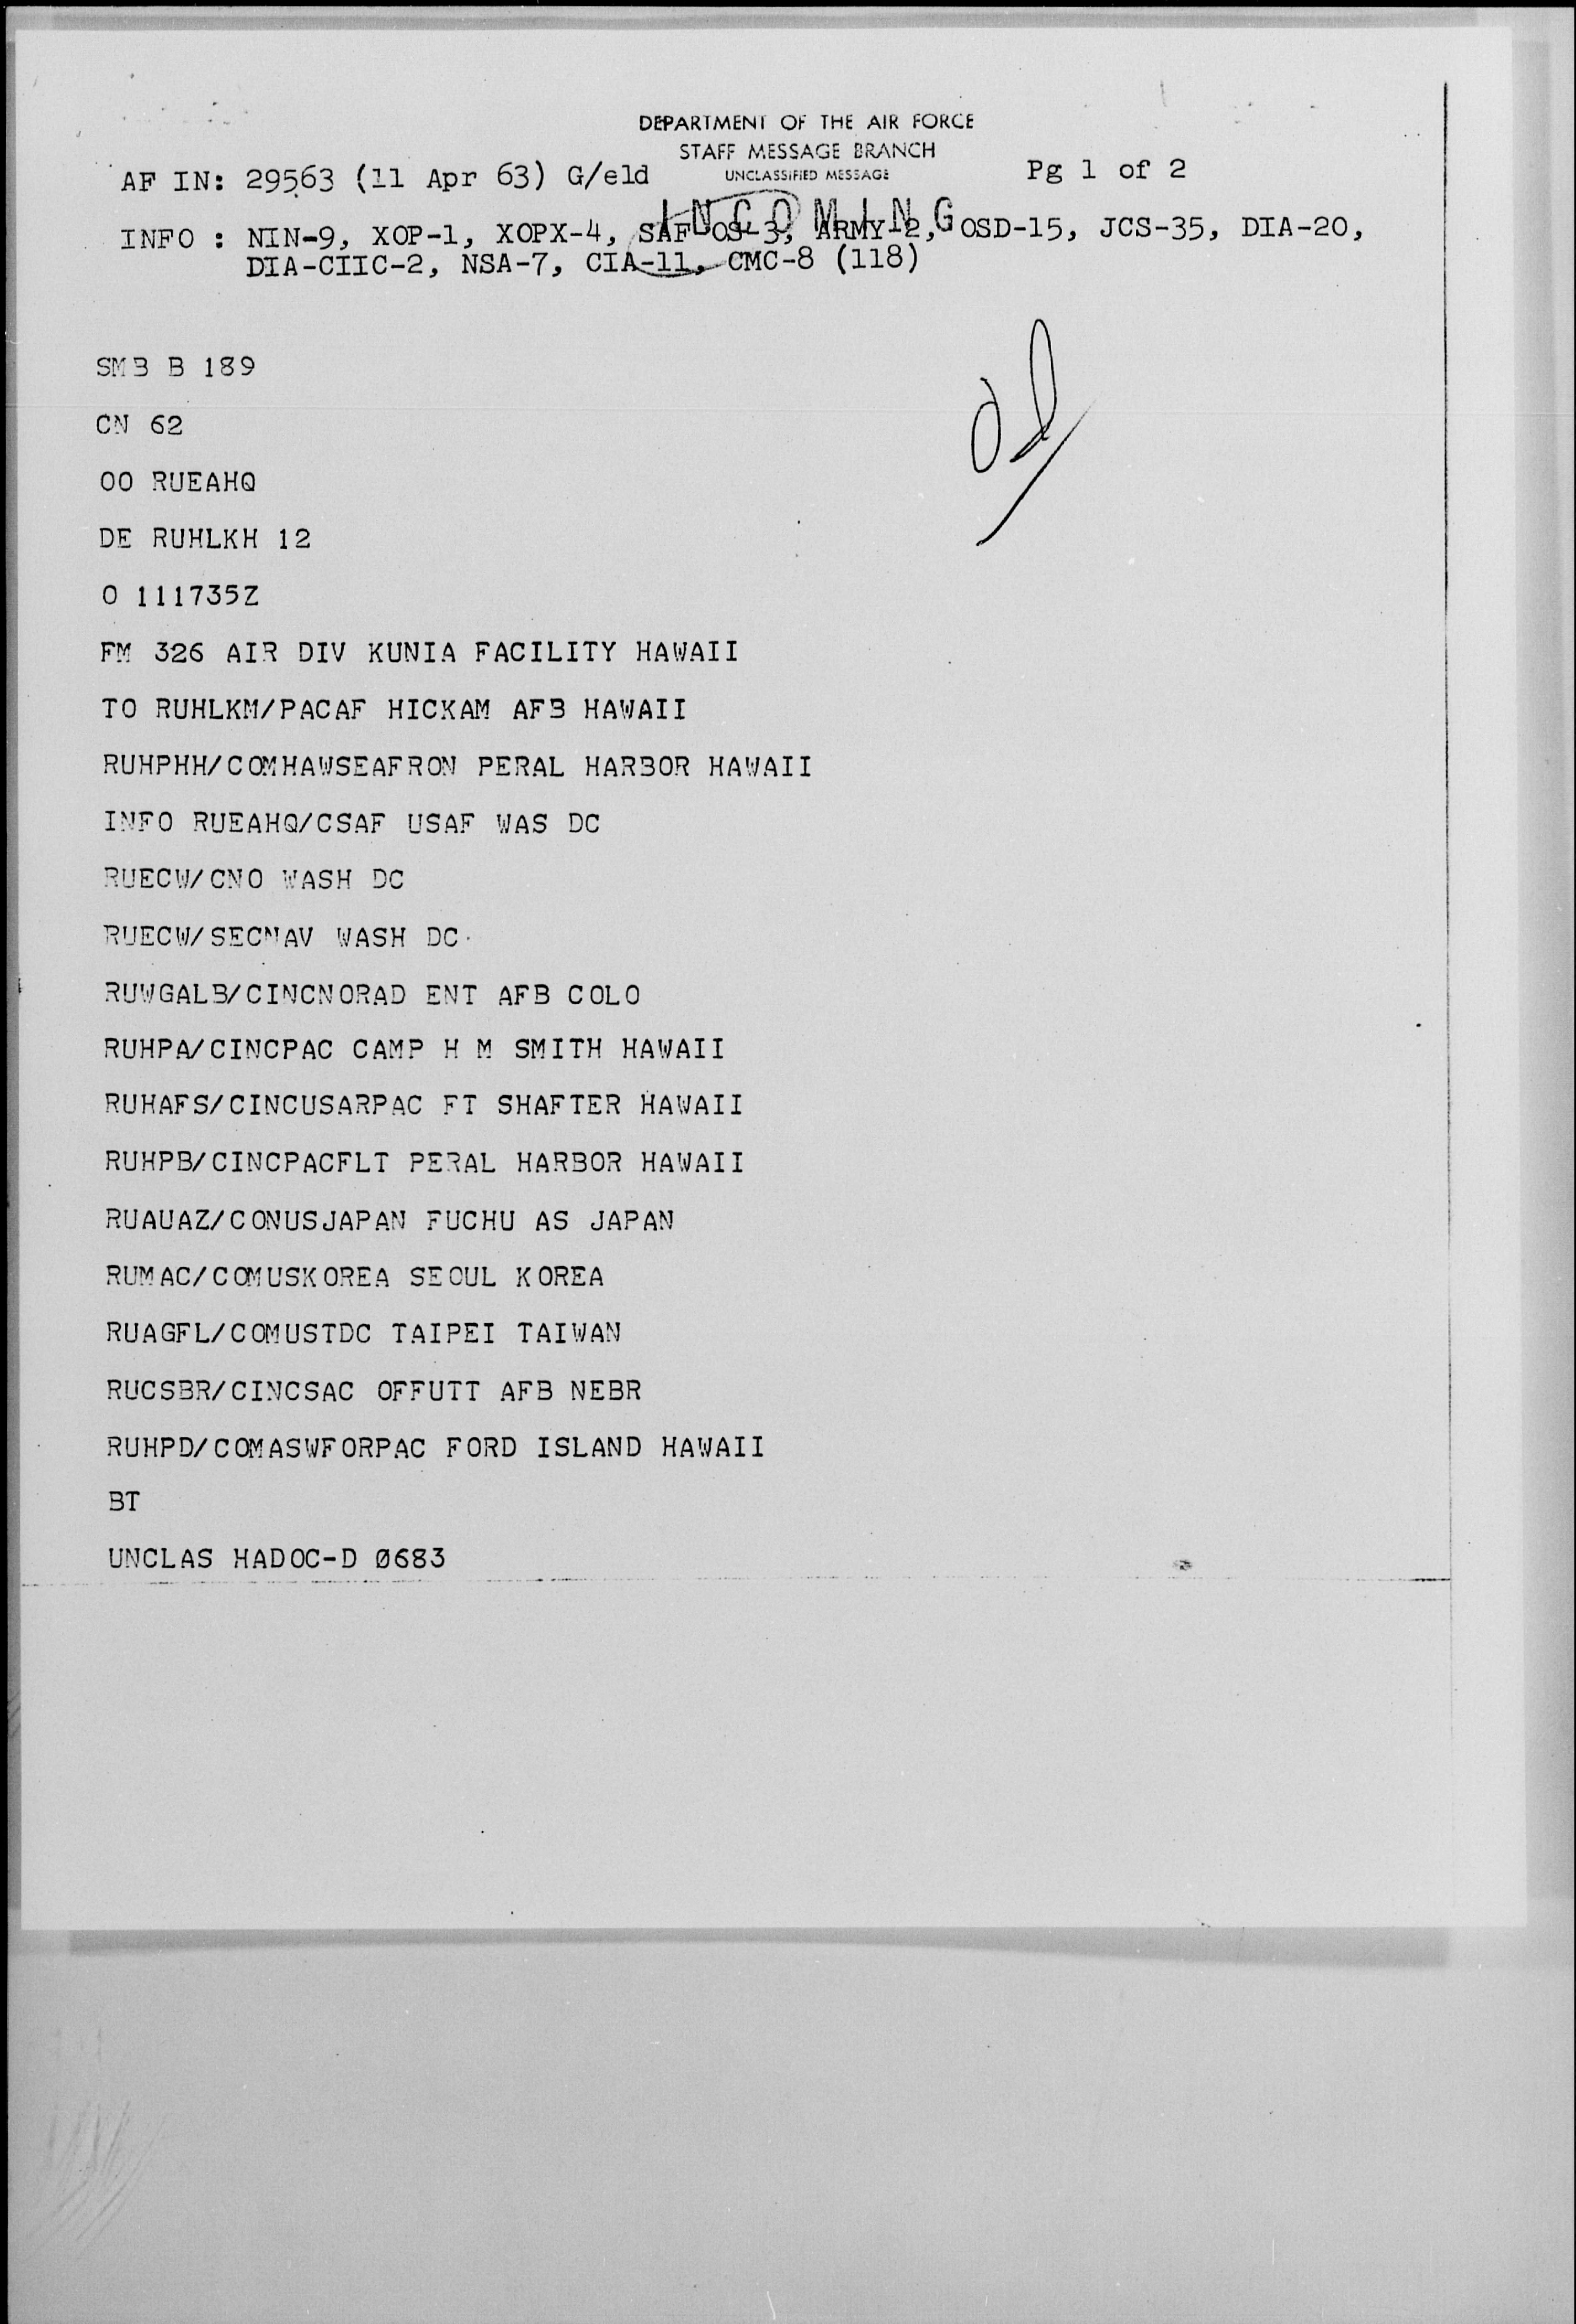 DEPARTMENT OF THE AIR FORCE
STAFF MESSAGE BRANCH
UNCLASSIFIED MESSAGE
AF IN: 29563 (11 Apr 63) G/eld
Pg 1 of 2
INCOMING
INFO : NIN-9, XOP-1, XOPX-4, SAF OS-3, ARMY-2, OSD-15, JCS-35, DIA-20,
DIA-CIIC-2, NSA-7, CIA-11, CMC-8 (118)
SMB B 189
CN 62
OO RUEAHQ
DE RUHLKH 12
O 111735Z
FM 326 AIR DIV KUNIA FACILITY HAWAII
TO RUHLKM/PACAF HICKAM AFB HAWAII
RUHPHH/COMHAWSEAFRON PERAL HARBOR HAWAII
INFO RUEAHQ/CSAF USAF WAS DC
RUECW/CNO WASH DC
RUECW/SECNAV WASH DC
RUWGALB/CINCNORAD ENT AFB COLO
RUHPA/CINCPAC CAMP H M SMITH HAWAII
RUHAFS/CINCUSARPAC FT SHAFTER HAWAII
RUHPB/CINCPACFLT PERAL HARBOR HAWAII
RUAUAZ/CONUSJAPAN FUCHU AS JAPAN
RUMAC/COMUSKOREA SEOUL KOREA
RUAGFL/COMUSTDC TAIPEI TAIWAN
RUCSBR/CINCSAC OFFUTT AFB NEBR
RUHPD/COMASWFORPAC FORD ISLAND HAWAII
BT
UNCLAS HADOC-D 0683